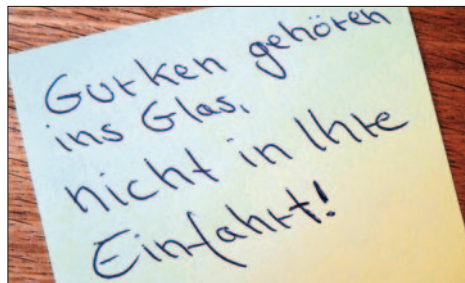 Gurken gehören
ins Glas,
nicht in Ihre
Einfahrt!